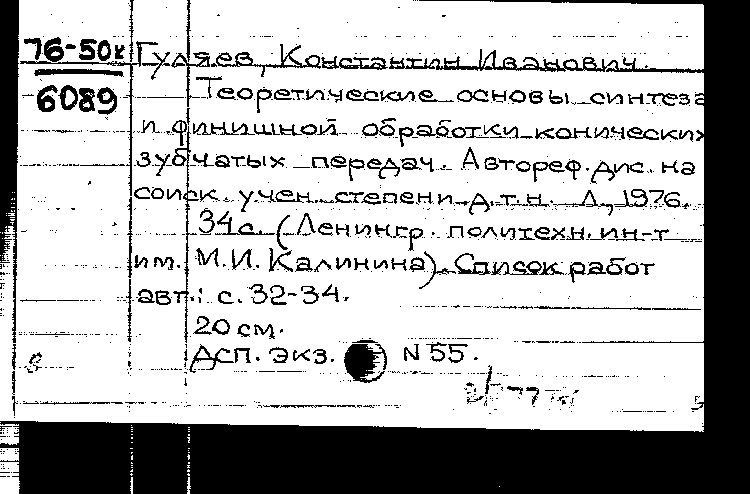 76-50к Гуляев, Константин Иванович.
6089 Теоретические основы синтеза
и финишной обработки конических
зубчатых передач. Автореф. дис. на
соиск. учен. степени д.т.н. Л., 1976.
34 с. (Ленингр. политехн. ин-т
им. М.И. Калинина). Список работ
авт.: с. 32-34.
20 см.
ДСП. экз. N 55.